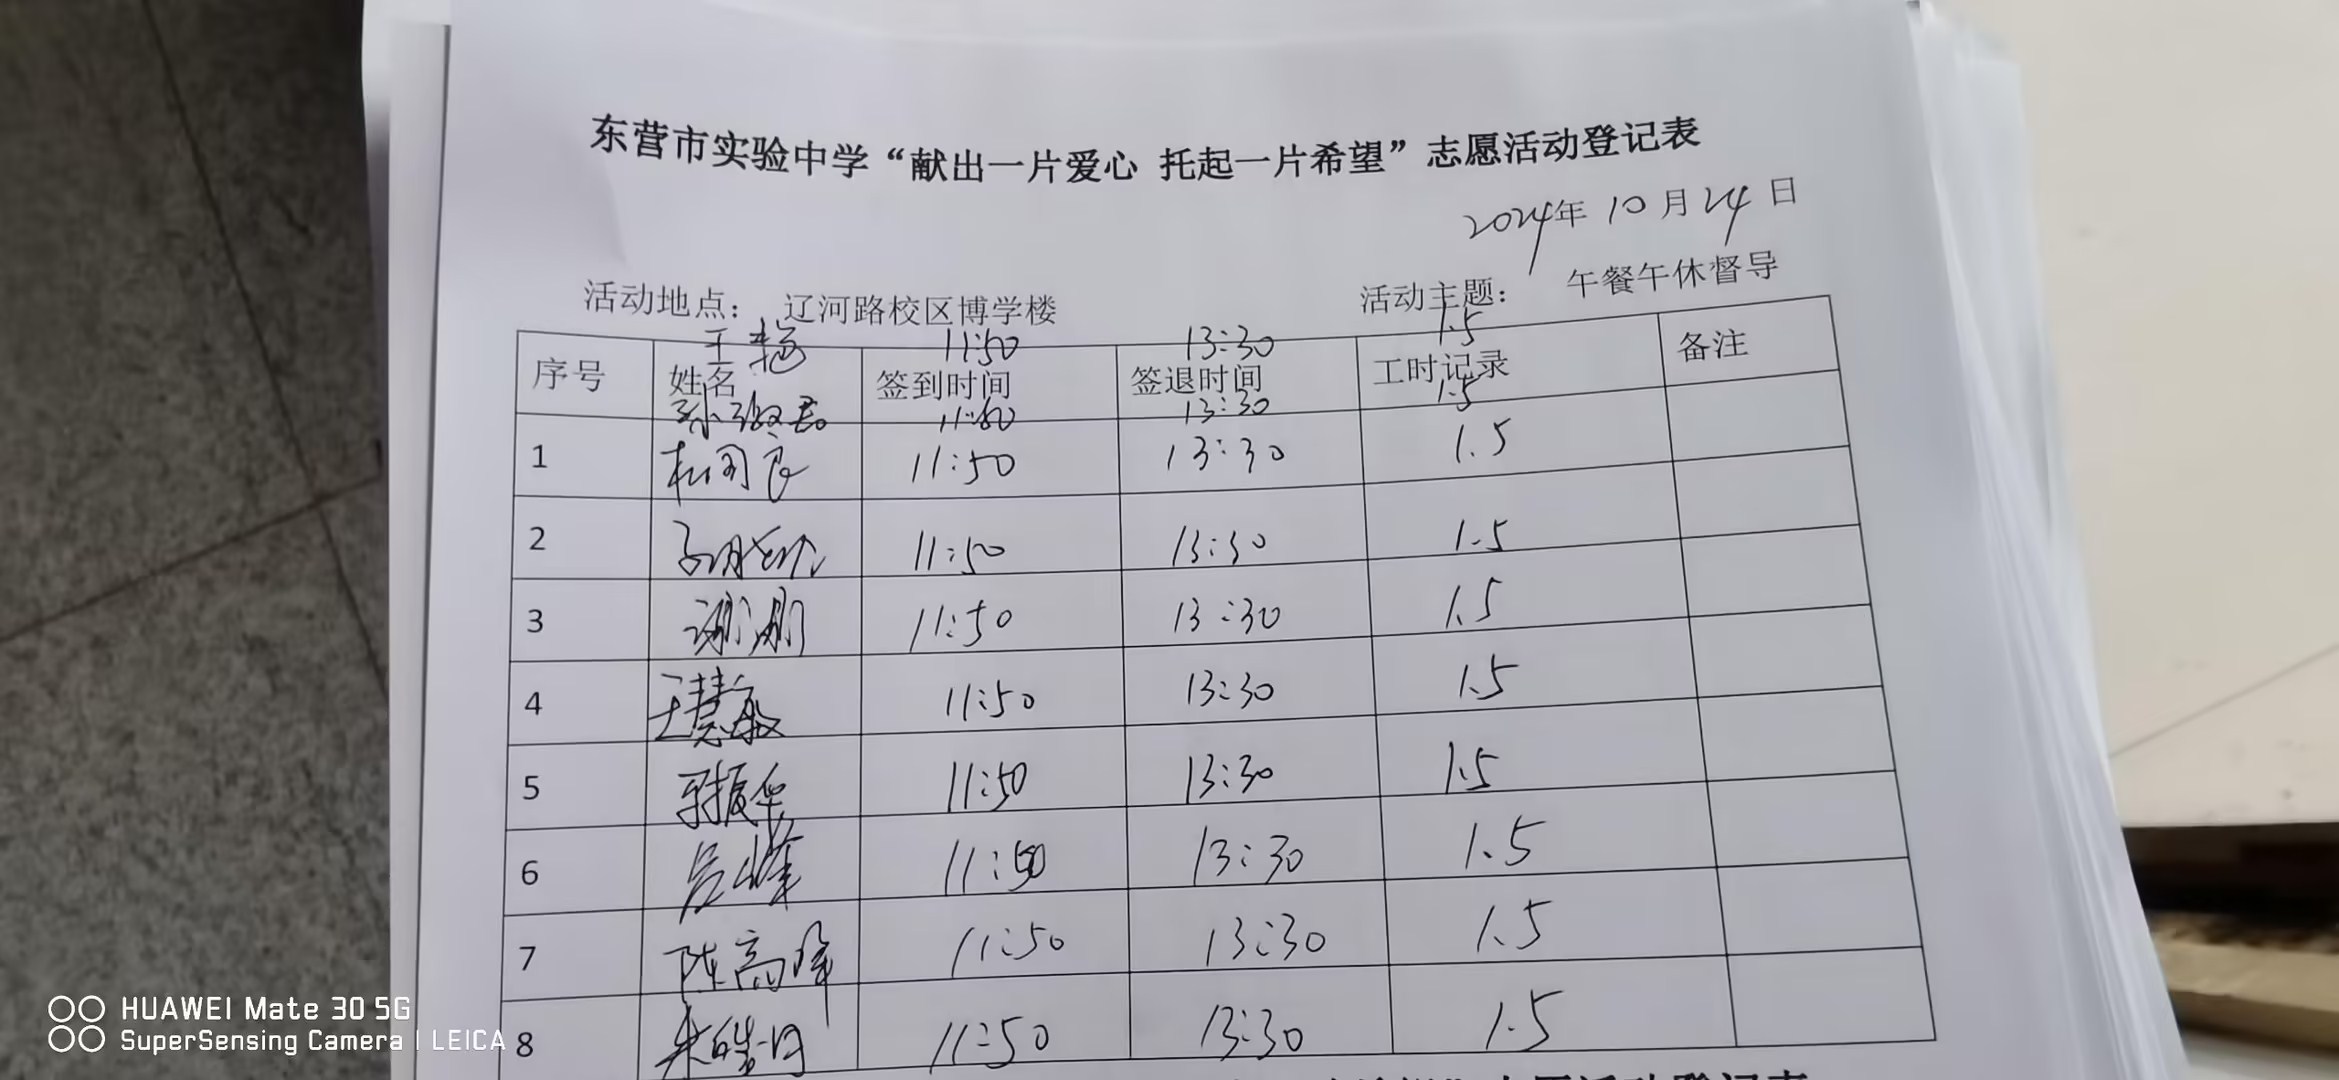 东营市实验中学“献出一片爱心 托起一片希望”志愿活动登记表
2024年10月24日
活动地点： 辽河路校区博学楼 活动主题： 午餐午休督导
王艳 11:50 13:30 1.5
序号 姓名 签到时间 签退时间 工时记录 备注
11:50 13:30 1.5
1 11:50 13:30 1.5
2 11:50 13:30 1.5
3 11:50 13:30 1.5
4 王慧敏 11:50 13:30 1.5
5 11:50 13:30 1.5
6 11:50 13:30 1.5
7 陈高峰 11:50 13:30 1.5
8 11:50 13:30 1.5
HUAWEI Mate 30 5G
SuperSensing Camera | LEICA